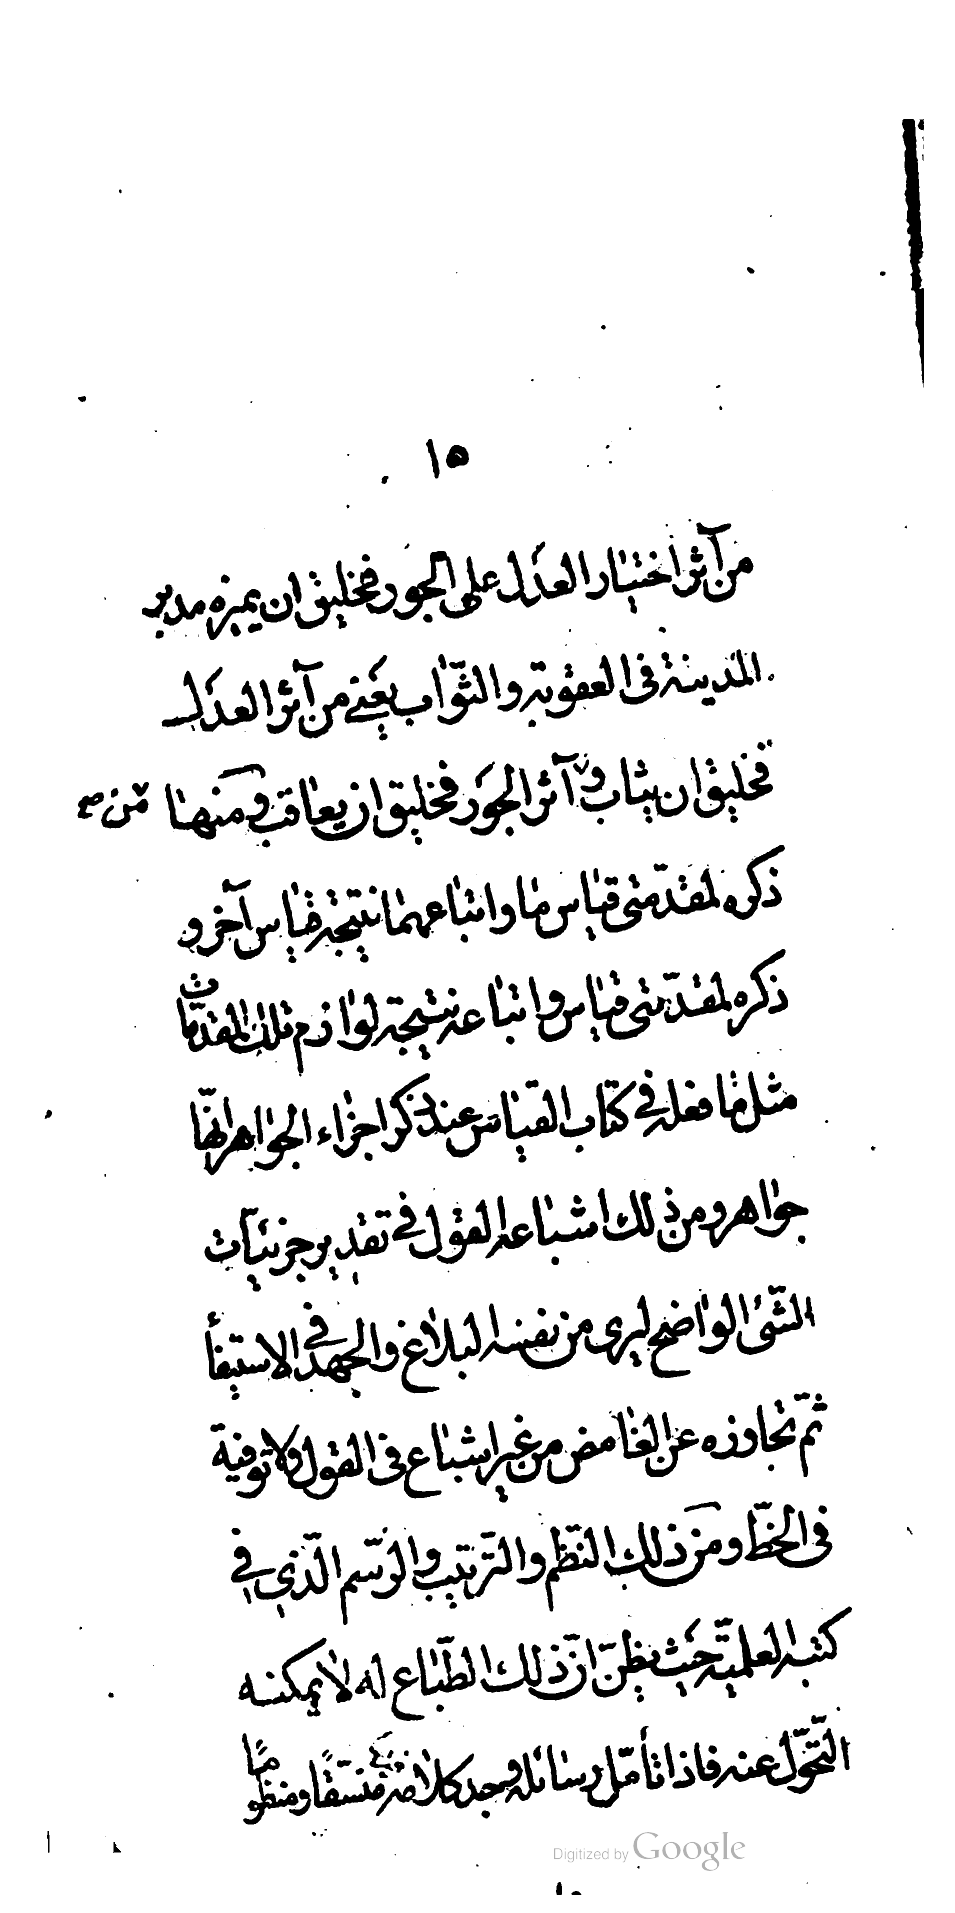 ١٥
من آثر اختيار العدل على الجور فخليق ان يميزه مدبر
المدينة فى العقوبة والثواب يعنى من آثر العدل
فخليق ان يثاب و آثر الجور فخليق ان يعاقب ومنها من صح
ذكره لمقدمتى قياس ما واتباعهما نتيجة قياس آخر و
ذكره لمقدمتى قياس واتباعه نتيجة لوازم تلك المقدمات
مثل ما فعله فى كتاب القياس عند ذكر اجزاء الجواهر انها
جواهر ومن ذلك اشباعه القول فى تقدير جزئيات
الشئ الواضح ليرى من نفسه البلاغ والجهد فى الاستيفأ
ثم تجاوزه عن الغامض من غير اشباع فى القول ولا توفية
فى الخط ومن ذلك النظم والترتيب والرسم الذى فى
كتبه العلمية حيث يظن ان ذلك الطباع له لا يمكنه
التحول عنه فاذا تأمل رسائله وجد كلامه منسقا ومنظوما
Digitized by Google